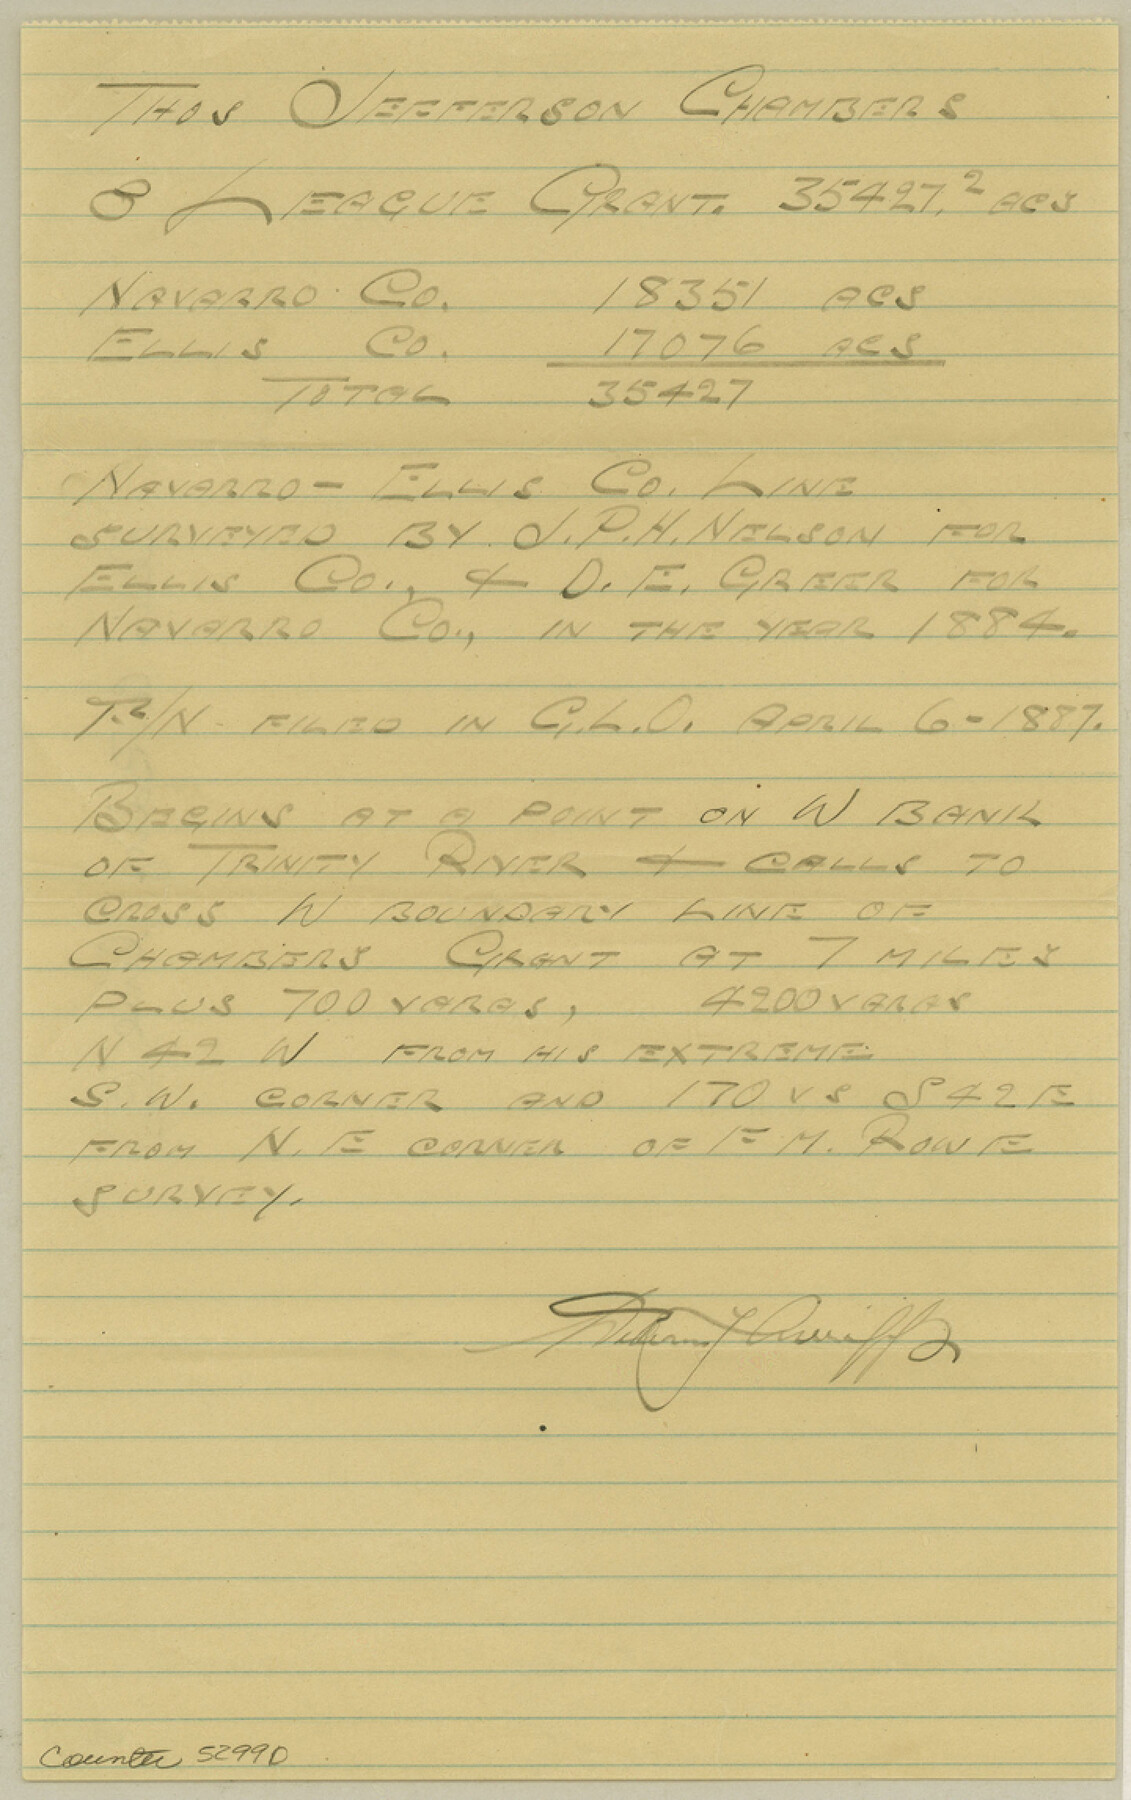 Thos Jefferson Chambers
8 League Grant. 35427.2 acs
Navarro Co. 18351 acs
Ellis Co. 17076 acs
Total 35427
Navarro - Ellis Co. Line
surveyed by J.P.H. Nelson for
Ellis Co., & D. E. Greer for
Navarro Co., in the year 1884.
filed in G.L.O. April 6-1887.
Begins at a point on W bank
of Trinity River & calls to
cross W boundary line of
Chambers Grant at 7 miles
plus 700 varas, 4200 varas
N 42 W from his extreme
S.W. corner and 170 vs S 42 E
from N. E corner of F M. Rowe
survey.
Counter 52990